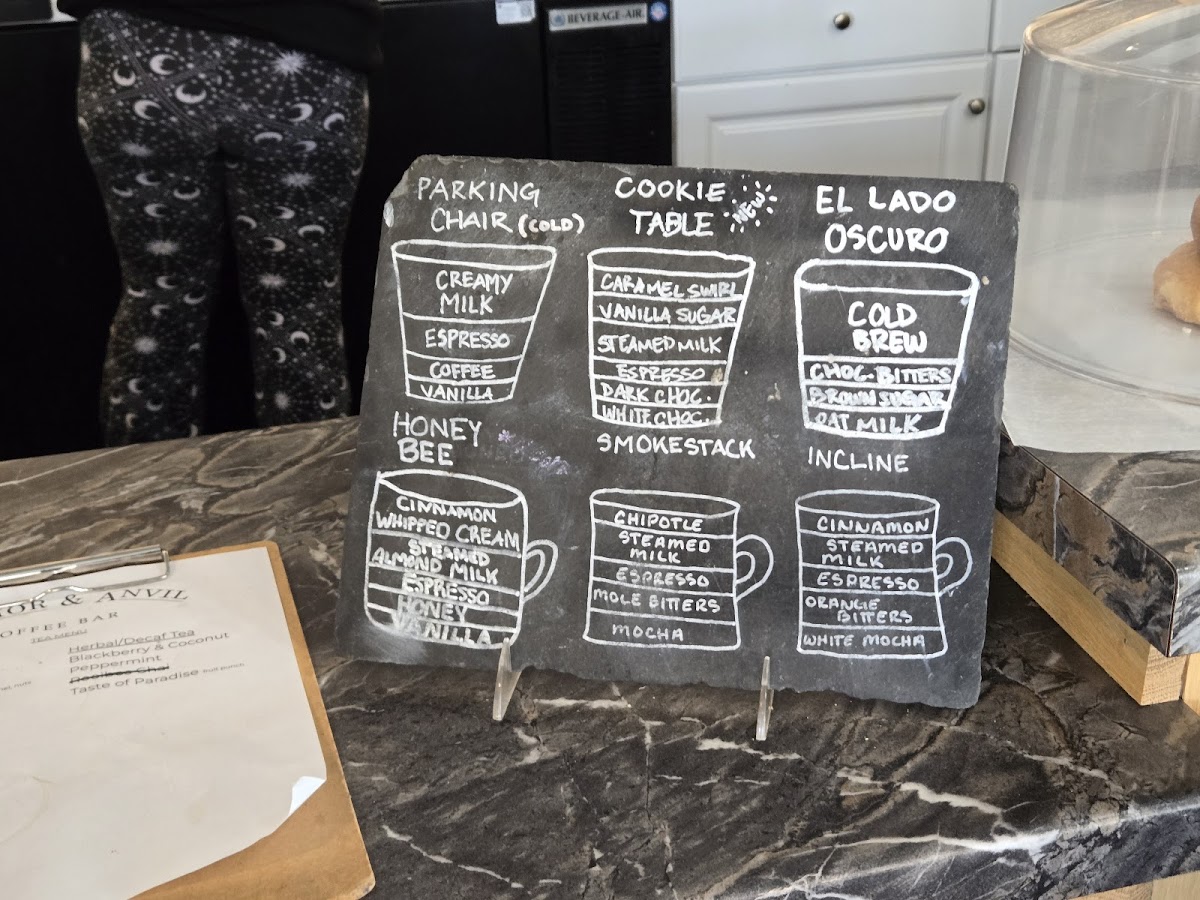 BEVERAGE-AIR
PARKING
CHAIR (COLD)
CREAMY
MILK
ESPRESSO
COFFEE
VANILLA
COOKIE
TABLE
NEW
CARAMEL SWIRL
VANILLA SUGAR
STEAMED MILK
ESPRESSO
DARK CHOC.
WHITE CHOC.
EL LADO
OSCURO
COLD
BREW
CHOC. BITTERS
BROWN SUGAR
OAT MILK
HONEY
BEE
CINNAMON
WHIPPED CREAM
STEAMED
ALMOND MILK
ESPRESSO
HONEY
VANILLA
SMOKESTACK
CHIPOTLE
STEAMED
MILK
ESPRESSO
MOLE BITTERS
MOCHA
INCLINE
CINNAMON
STEAMED
MILK
ESPRESSO
ORANGE
BITTERS
WHITE MOCHA
& ANVIL
COFFEE BAR
TEA MENU
Herbal/Decaf Tea
Blackberry & Coconut
Peppermint
Rooibos Chai
Taste of Paradise fruit punch